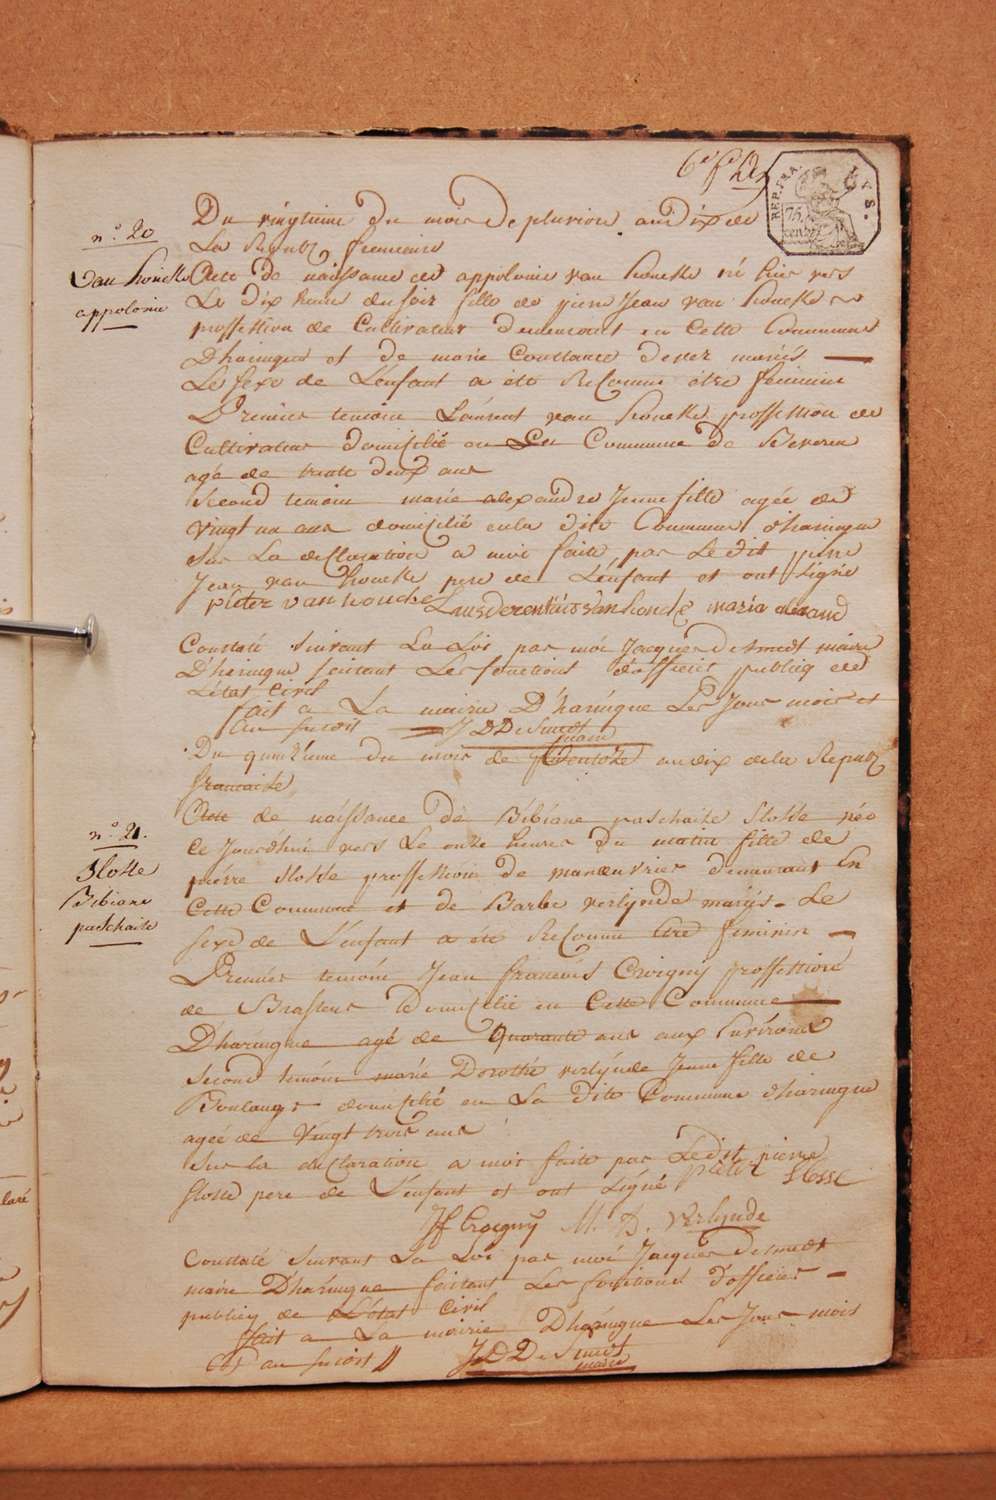 REP. FRA.
75
cent.
n.º 20
van houcke
appolonie
Du vingtieme du mois de pluviose an dix de
La Republ francaise
Acte de naissance de appolonie van houcke né hier vers
Le dix heure du soir fille de pierre Jean van houcke
proffession de Cultivateur demeurant en Cette Commune
D'haringue et de marie Constance devez mariés —
Le sexe de L'enfant a été Reconnu être féminin
Premier temoin Laurent van houcke proffession de
Cultivateur domicilié en La Commune de Beveren
agé de trente deux ans
Second temoin marie alexandre Jeune fille agée de
vingt un ans domicilié en la dite Commune d'haringue
Sur La declaration a moi faite par Le dit pierre
Jean van houcke pere de L'enfant et ont signé
pieter van houcke Laurentius van houcke maria alexand
Constaté suivant La Loi par moi Jacques Desmedt maire
D'haringue faisant Les fonctions d'officier publicq de
L'état civil
fait a La mairie D'haringue Les Jour mois et
An susdit — J D De Smedt
maire
Du quinzieme du mois de ventose an dix de la Republ
francaise
n.º 21.
Slosse
Bibiane
paschaise
Acte de naissance de Bibiane paschaise Slosse née
Ce Jourdhui vers Le onze heures du matin fille de
pierre Slosse proffession de manœuvrier demeurant En
Cette Commune et de Barbe verlynde mariés. Le
sexe de L'enfant a été Reconnu être feminin —
Premier temoin Jean francois Cravigny proffession
de Brasseur domicilié en Cette Commune —
D'haringue agé de quarante ans aux Environs
Second temoin marie Dorothé verlynde Jeune fille de
Boulanger domicilié en La dite Commune d'haringue
agée de vingt trois ans
Sur la declaration a moi faite par Le dit pierre
Slosse pere de L'enfant et ont signé pieter Slosse
M. D. verlynde
Constaté suivant La Loi par moi Jacques Desmedt
maire D'haringue faisant Les fonctions d'officier —
publicq de L'état civil
fait a La mairie D'haringue Les Jour mois
Et an susdit // J D De Smedt
maire